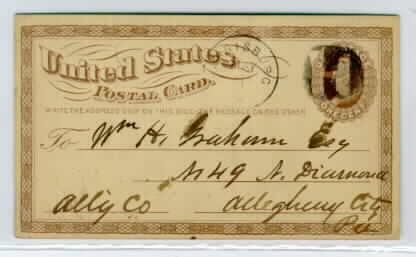 United States
POSTAL CARD.
WRITE THE ADDRESS ONLY ON THIS SIDE—THE MESSAGE ON THE OTHER
SBURG
ONE CENT
To Wm H. Graham Esq
No 49 N. Diamond
Ally Co Allegheny City
Pa